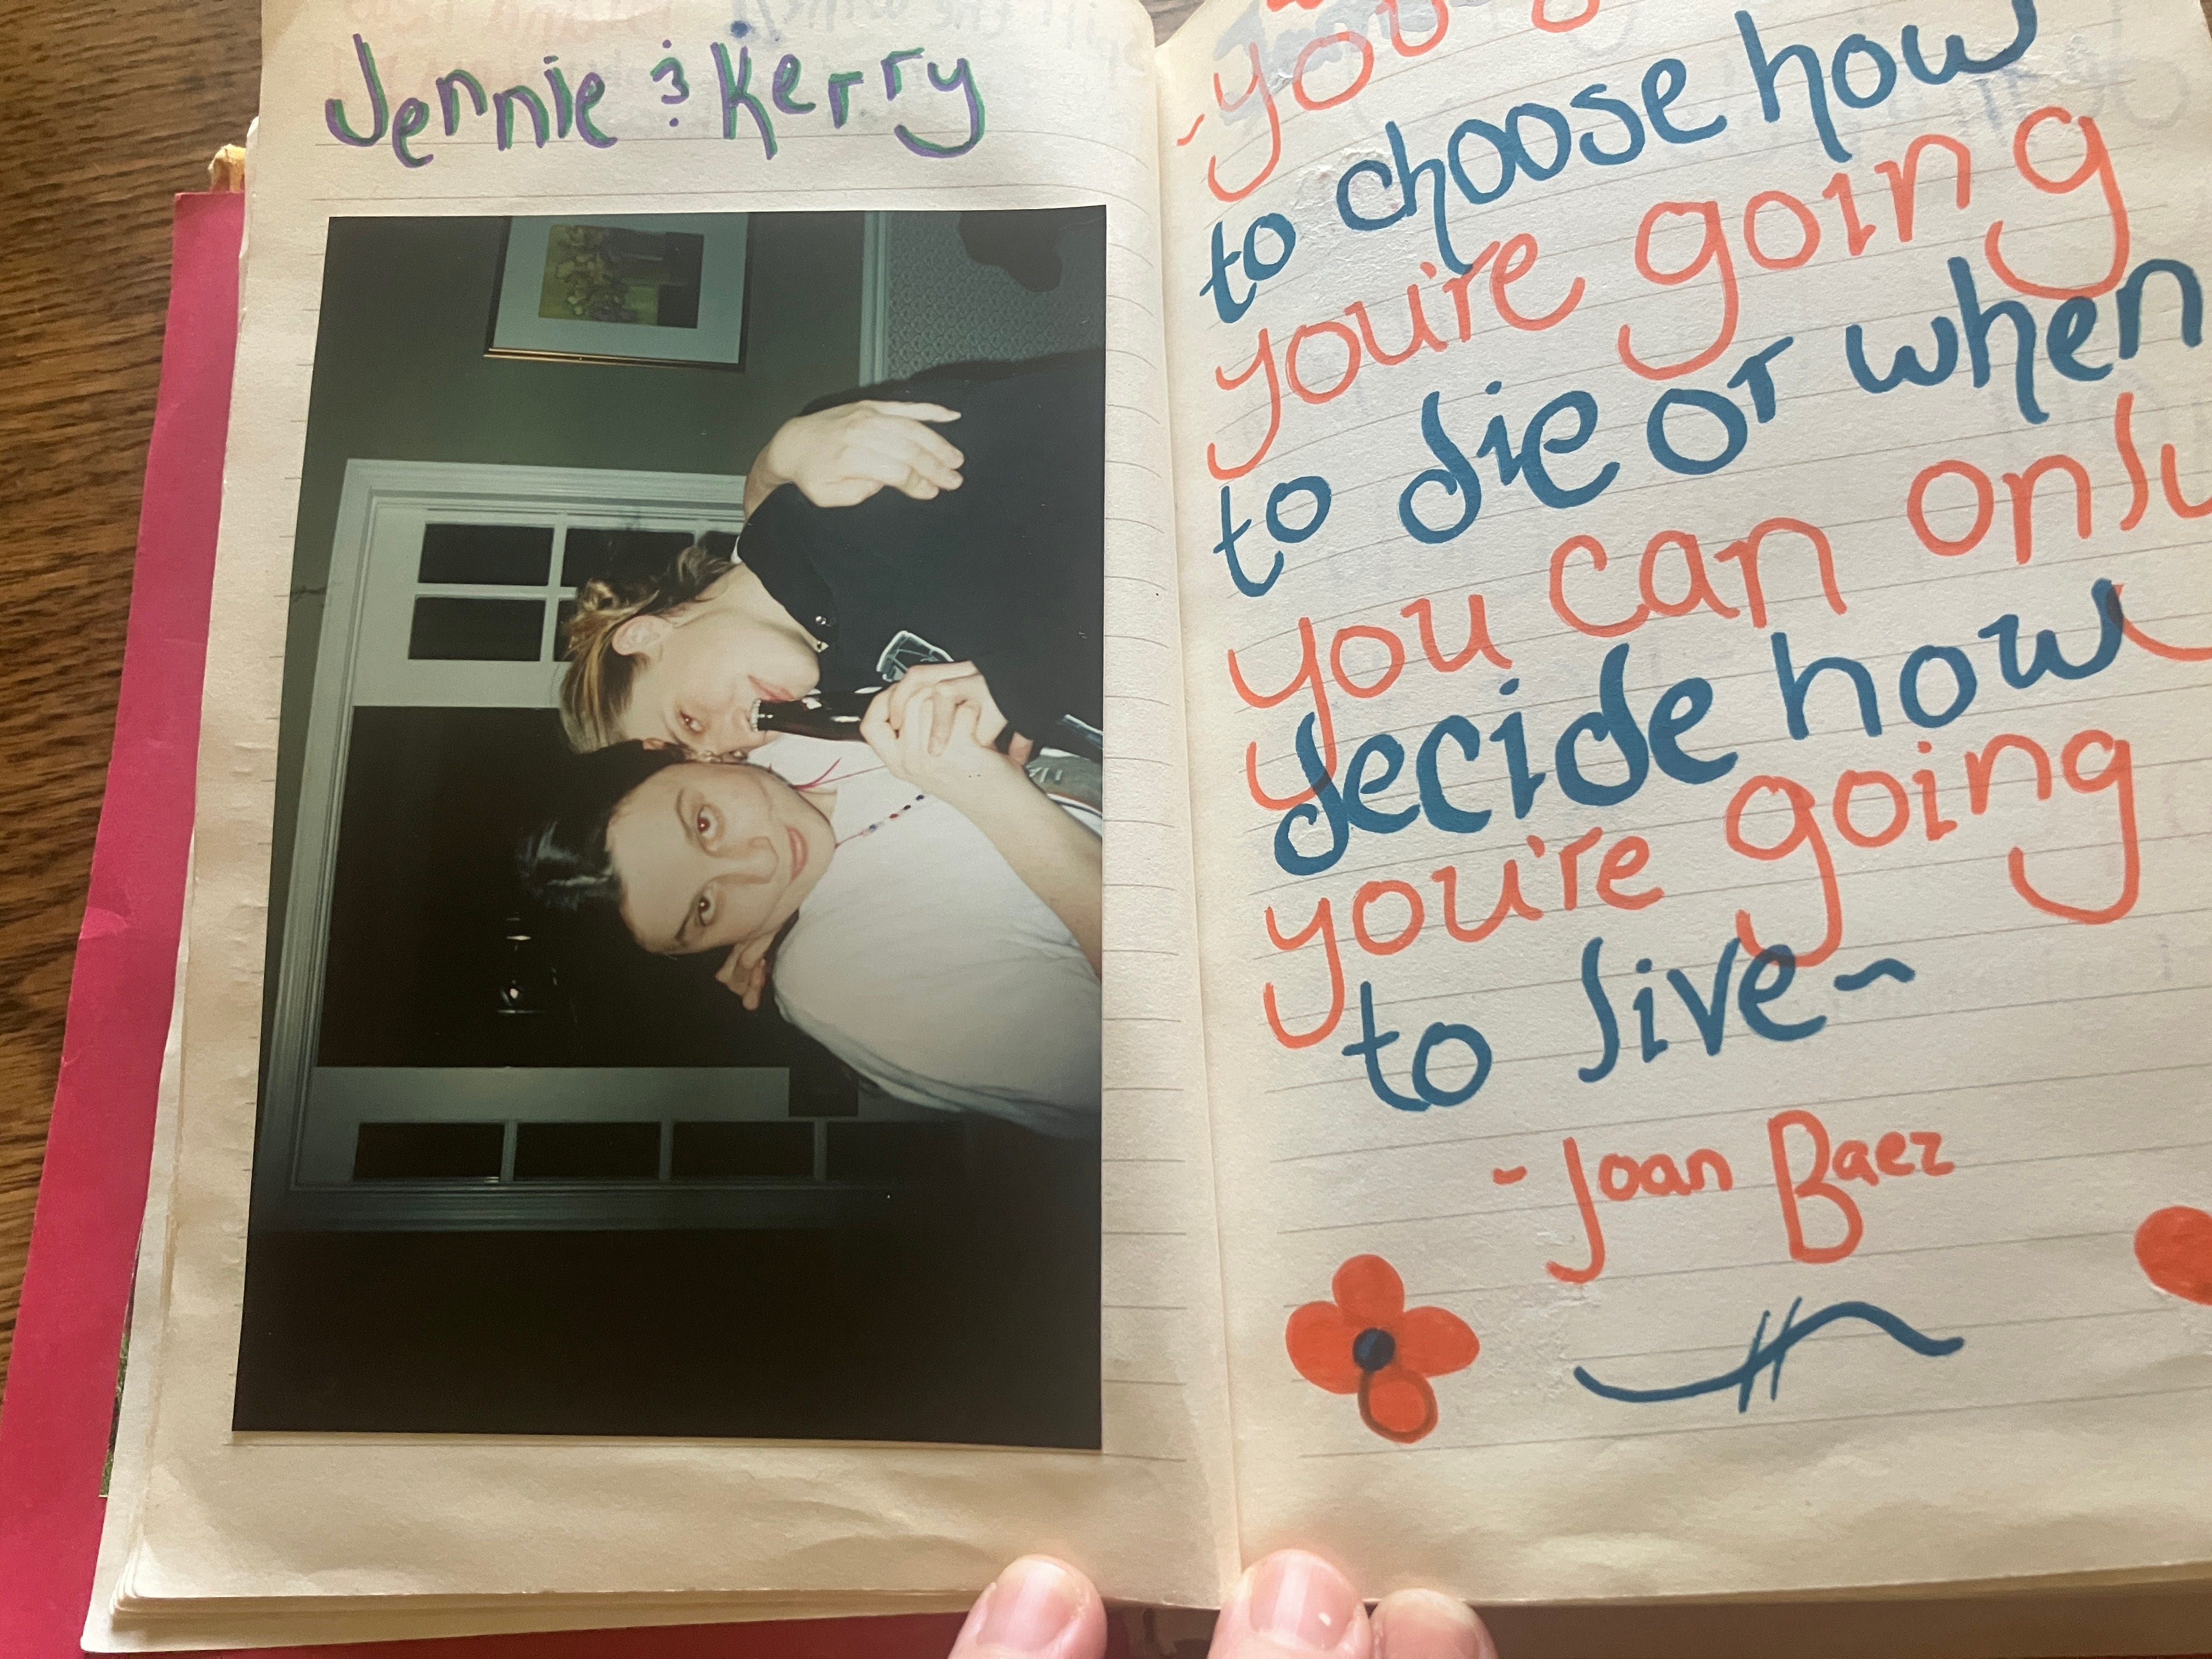 Jennie & Kerry
to choose how
you're going
to die or when
you can only
decide how
you're going
to live~
- Joan Baez